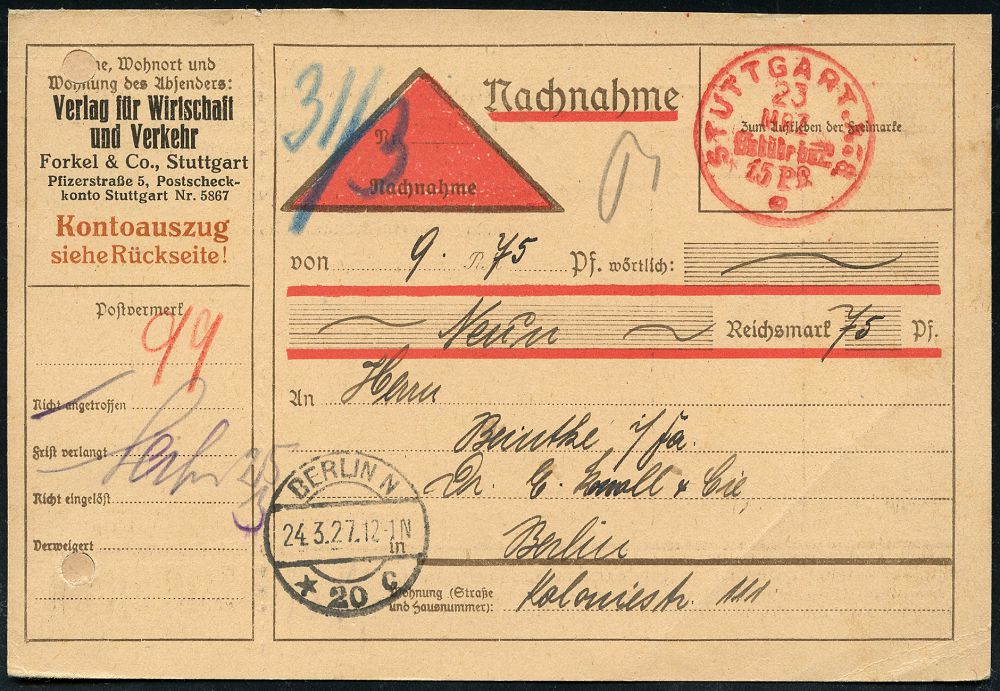 ne, Wohnort und
Wohnung des Absenders:
Verlag für Wirtschaft
und Verkehr
Forkel & Co., Stuttgart
Pfizerstraße 5, Postscheck-
konto Stuttgart Nr. 5867
Kontoauszug
siehe Rückseite!
Postvermerk
Nicht angetroffen
Frist verlangt
Nicht eingelöst
Verweigert
Nr.
Nachnahme
Nachnahme
Zum Aufkleben der Freimarke
STUTTGART
23
MRZ
15 Pf
von 9. 75 Pf. wörtlich:
Neun Reichsmark 75 Pf.
An Herrn
Beintke i/fa.
Dr. E. Knoll & Cie,
Berlin
Wohnung (Straße
und Hausnummer): Koloniestr. 111
BERLIN N
24.3.27.12-1N
* 20 c